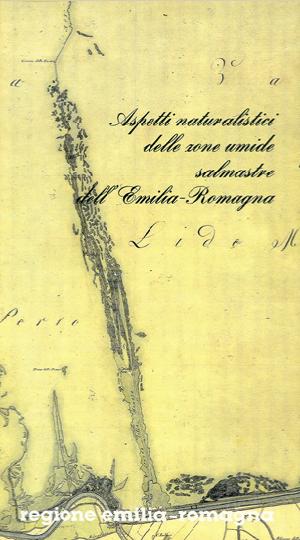 Aspetti naturalistici
delle zone umide
salmastre
dell'Emilia-Romagna
regione emilia-romagna